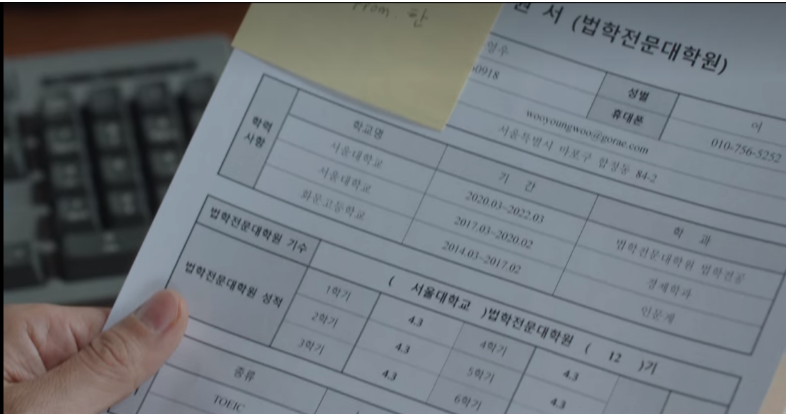 From. 한
원 서 (법학전문대학원)
영우
0918
성별
여
휴대폰
010-756-5252
wooyoungwoo@gorae.com
서울특별시 마포구 합정동 84-2
학력
사항
학교명
기 간
학 과
서울대학교
2020.03~2022.03
법학전문대학원 법학전공
서울대학교
2017.03~2020.02
경제학과
화문고등학교
2014.03~2017.02
인문계
법학전문대학원 기수
( 서울대학교 )법학전문대학원 ( 12 )기
법학전문대학원 성적
1학기
4.3
4학기
4.3
2학기
4.3
5학기
4.3
3학기
4.3
6학기
종류
TOEIC